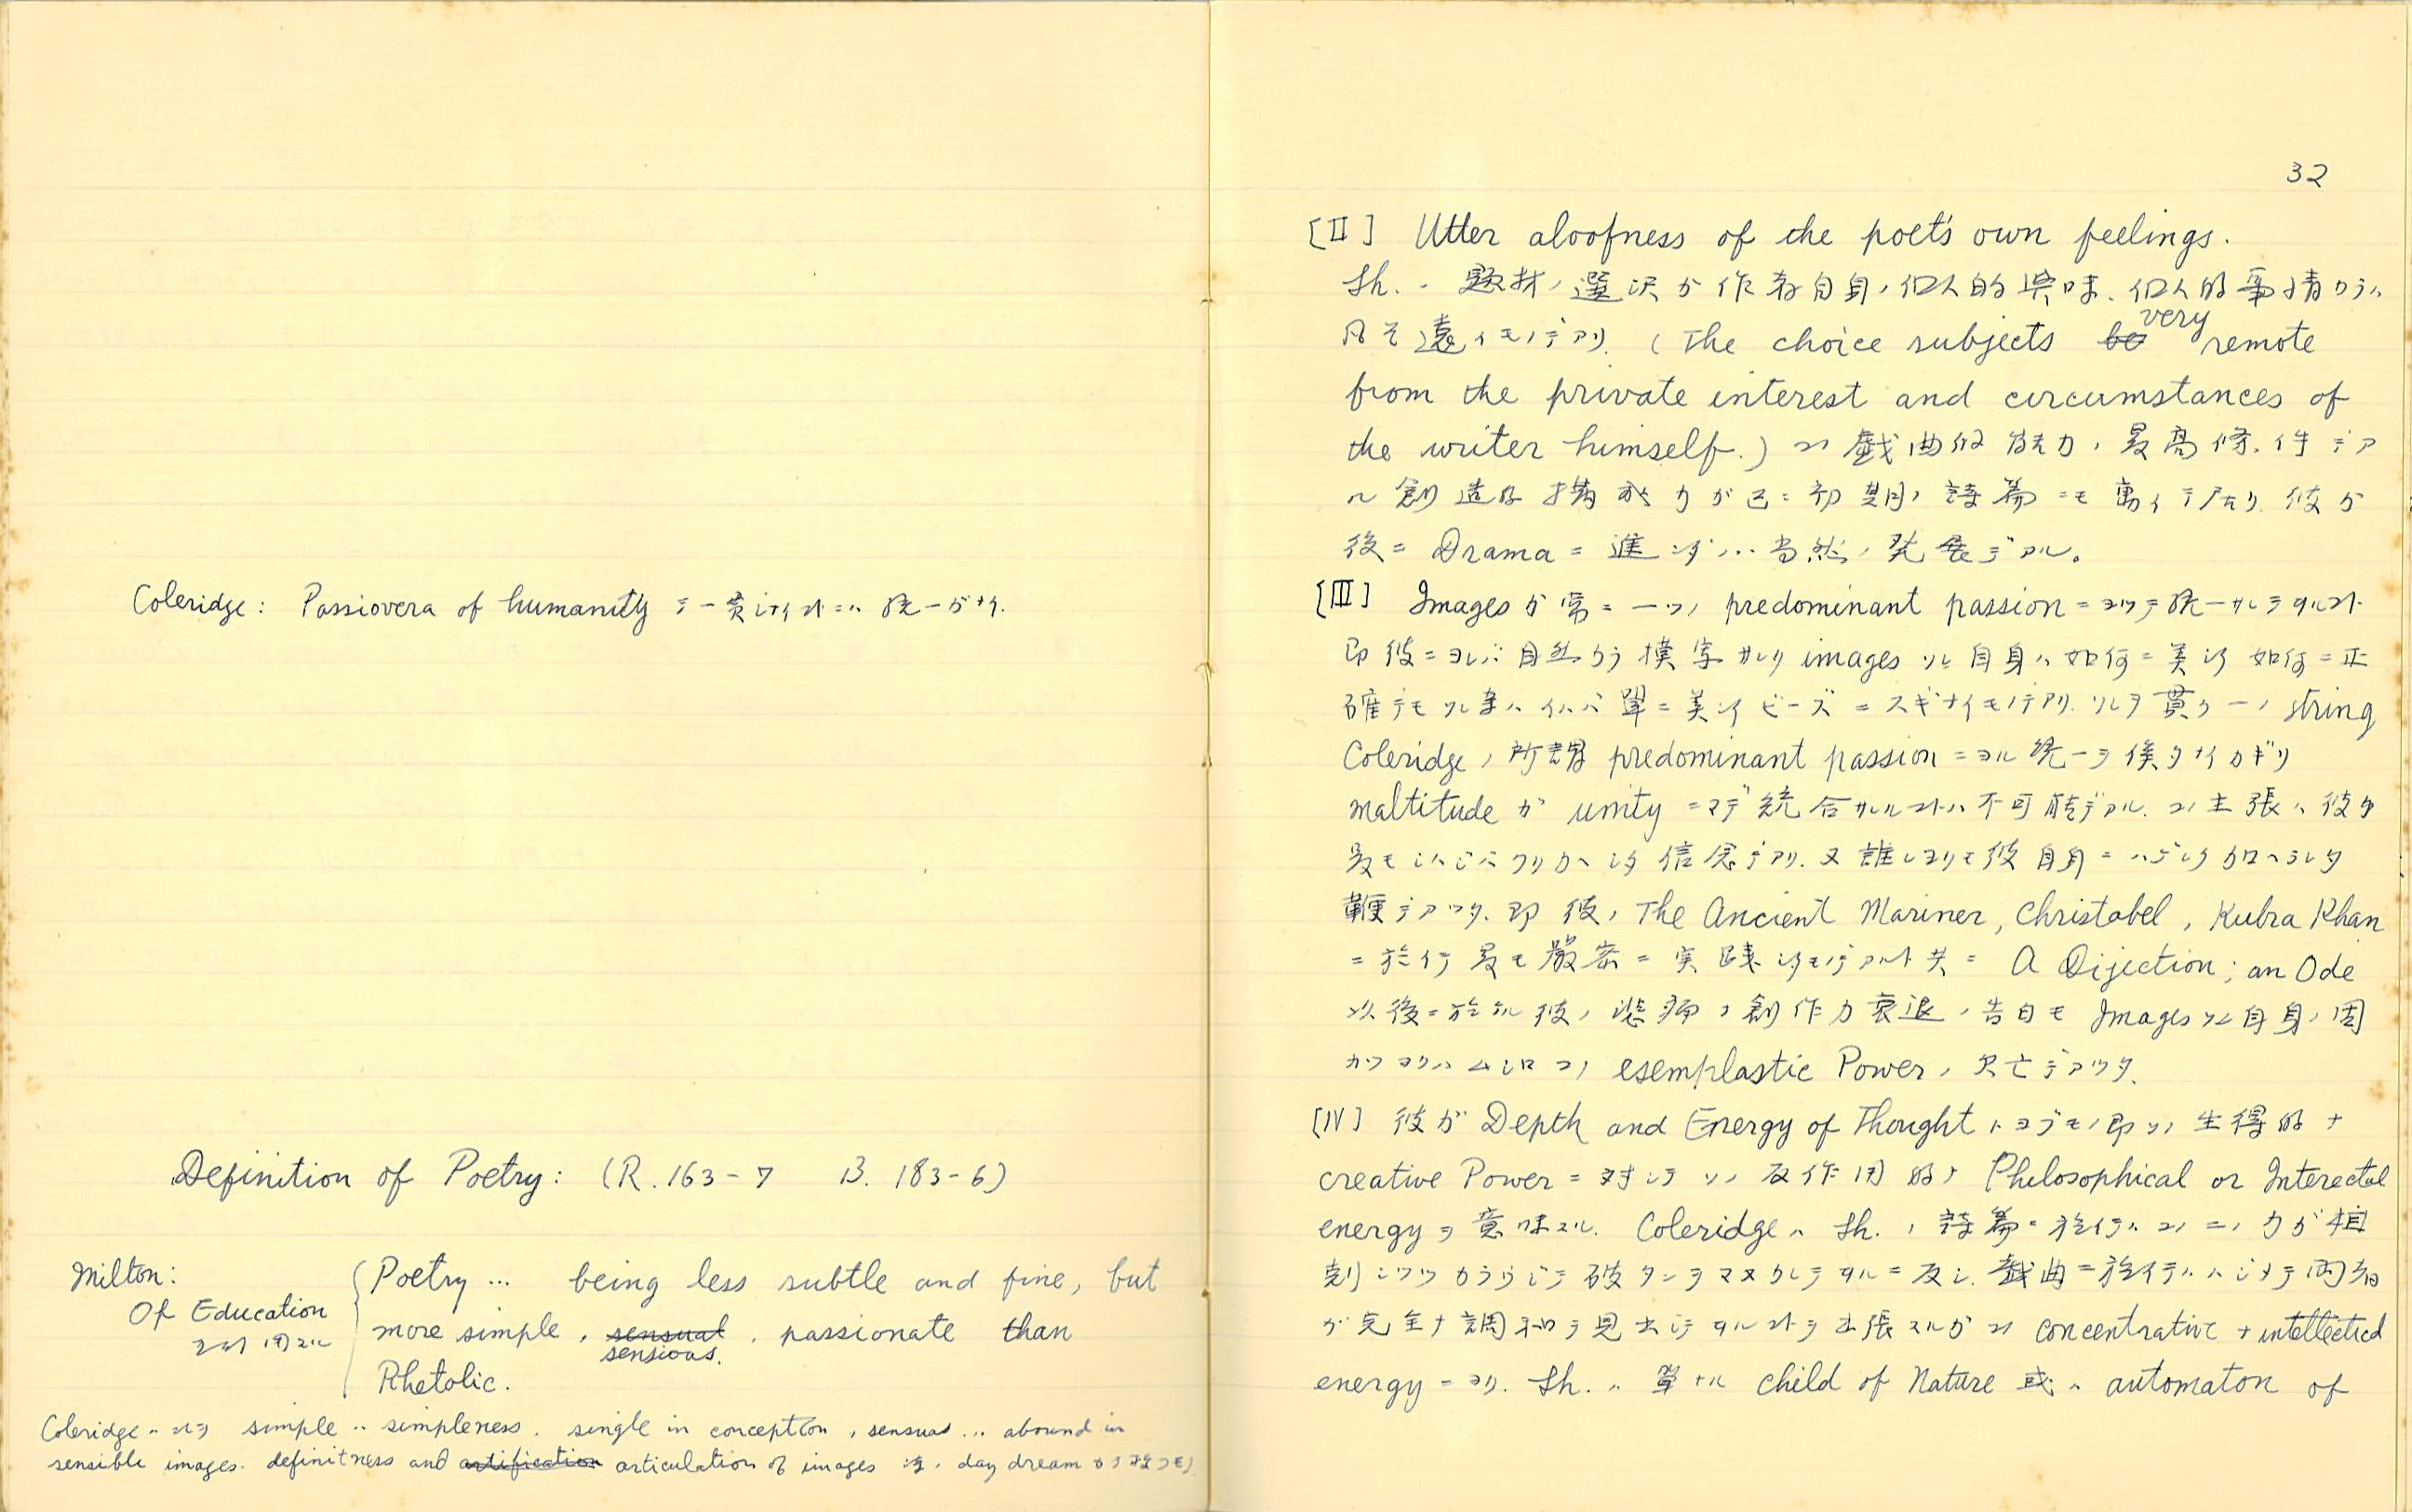 Coleridge: Passiovera of humanity デ一貫シナイ時ニハ 統一ガナイ.
Definition of Poetry: (R. 163-7 B. 183-6)
Milton:
Of Education
Poetry ... being less subtle and fine, but
more simple, sensual, passionate than
sensious.
Rhetolic.
Coleridge ハ simple .. simpleness. single in conception, sensual ... abound in
sensible images. definitness and artification articulation of images day dream
32
[II] Utter aloofness of the poet's own feelings.
Sh. . 題材ノ選沢ガ作者自身ノ個人的興味、個人的事情カラハ
凡ソ遠イモノデアリ. (The choice subjects be very remote
from the private interest and circumstances of
the writer himself.) コノ戯曲的能力ノ最高條件デア
ル創造的構成力ガ已ニ初期ノ詩篇ニモ働イテ居リ. 彼ガ
後ニ Drama ニ進ンダノハ当然ノ発展デアル。
[III] Images ガ常ニ一ツノ predominant passion ニヨツテ統一サレテヰルコト
即彼ニヨレバ自然カラ模写サレタ images ソレ自身ハ如何ニ美シク如何ニ正
確デモソレ等ハイハバ単ニ美シイビーズニスギナイモノデアリ. ソレヲ貫ク一ノ string
Coleridge ノ所謂 predominant passion ニヨル統一ヲ俟タナイカギリ
maltitude ガ unity ニマデ統合サレルコトハ不可能デアル. コノ主張ハ彼ガ
最モシバシバクリカヘシタ信念デアリ. 又誰レヨリモ彼自身ニハゲシク加ヘラレタ
鞭デアツタ. 即彼ノ The Ancient Mariner, Christabel, Kubra Khan
ニ於イテ最モ厳密ニ実践シタモノデアルト共ニ A Dijection; an Ode
以後ニ於ケル彼ノ悲痛ナ創作力衰退ノ告白モ Images ソレ自身ノ涸
カツヨリハムシロコノ esemplastic Power ノ欠亡デアツタ.
[IV] 彼ガ Depth and Energy of Thought トヨブモノ即ソノ生得的ナ
creative Power ニ対シテソノ反作用的ナ Philosophical or Interectal
energy ヲ意味スル. Coleridge ハ Sh. ノ詩篇ニ於イテハコノ二ノ力ガ相
剋シツツカラウジテ破タンヲマヌカレテヰルニ反シ. 戯曲ニ於イテハハジメテ両者
ガ完全ナ調和ヲ見出シテヰルコトヲ主張スルガコノ concentrative + intellectied
energy ニヨリ. Sh. ハ単ナル child of Nature 或ハ automaton of